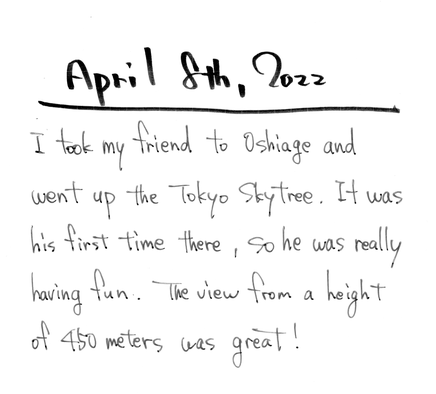 April 8th, 2022
I took my friend to Oshiage and
went up the Tokyo Skytree. It was
his first time there, so he was really
having fun. The view from a height
of 450 meters was great!